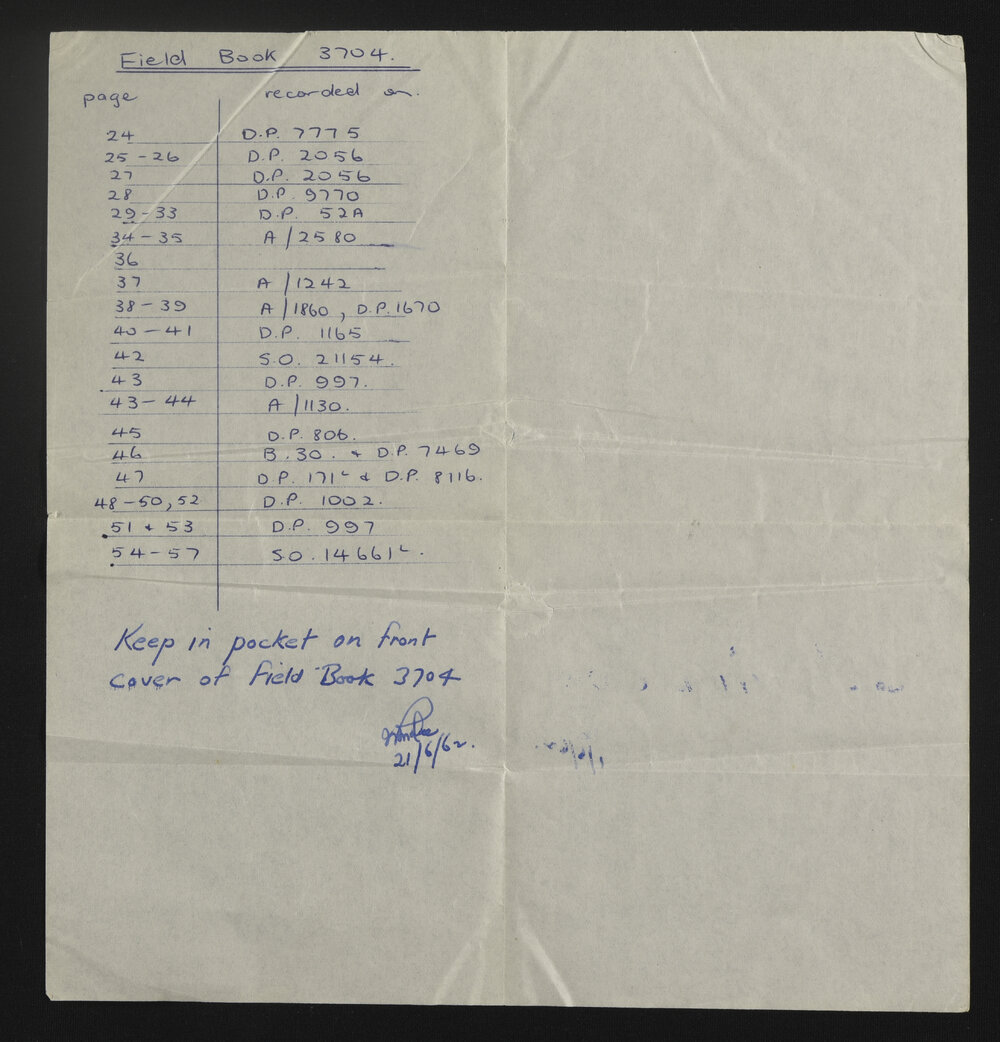 Field Book 3704.
page recorded on.
24 D.P. 7775
25-26 D.P. 2056
27 D.P. 2056
28 D.P. 9770
29-33 D.P. 52A
34-35 A/2580
36
37 A/1242
38-39 A/1860, D.P. 1670
40-41 D.P. 1165
42 S.O. 21154.
43 D.P. 997.
43-44 A/1130.
45 D.P. 806.
46 B.30. & D.P. 7469
47 D.P. 171ᴸ & D.P. 8116.
48-50, 52 D.P. 1002.
51 & 53 D.P. 997
54-57 S.O. 14661ᴸ.
Keep in pocket on front
cover of Field Book 3704
21/6/62.